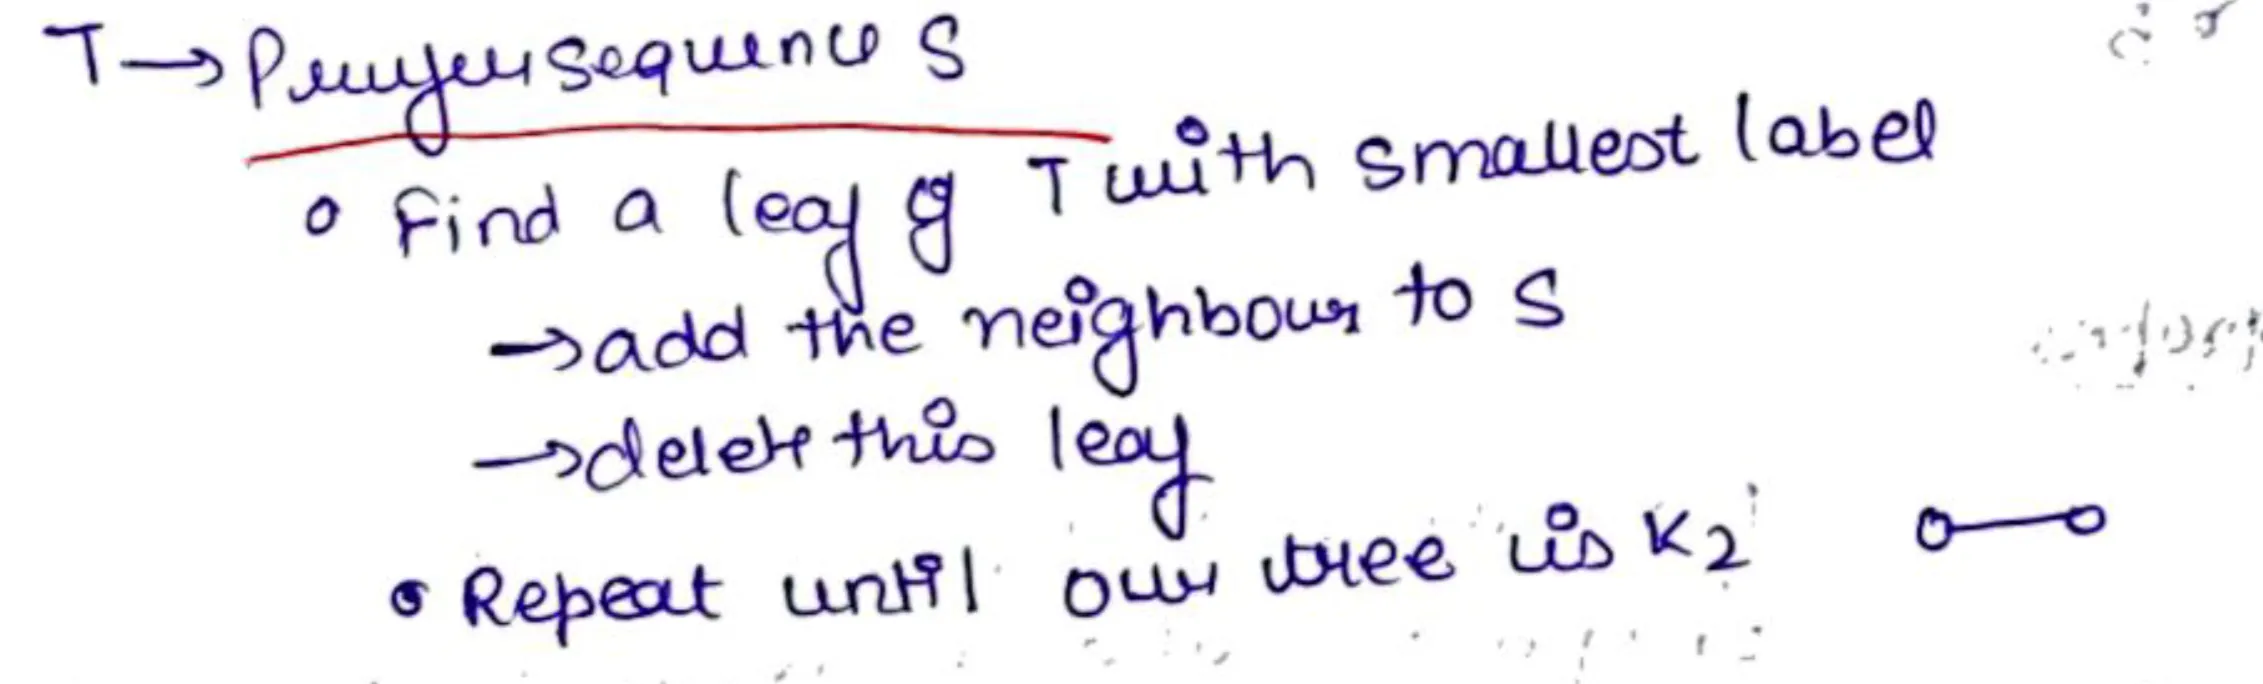 T → Pruyfer sequence S
• Find a leaf of T with smallest label
→ add the neighbour to S
→ delete this leaf
• Repeat until our tree is K2